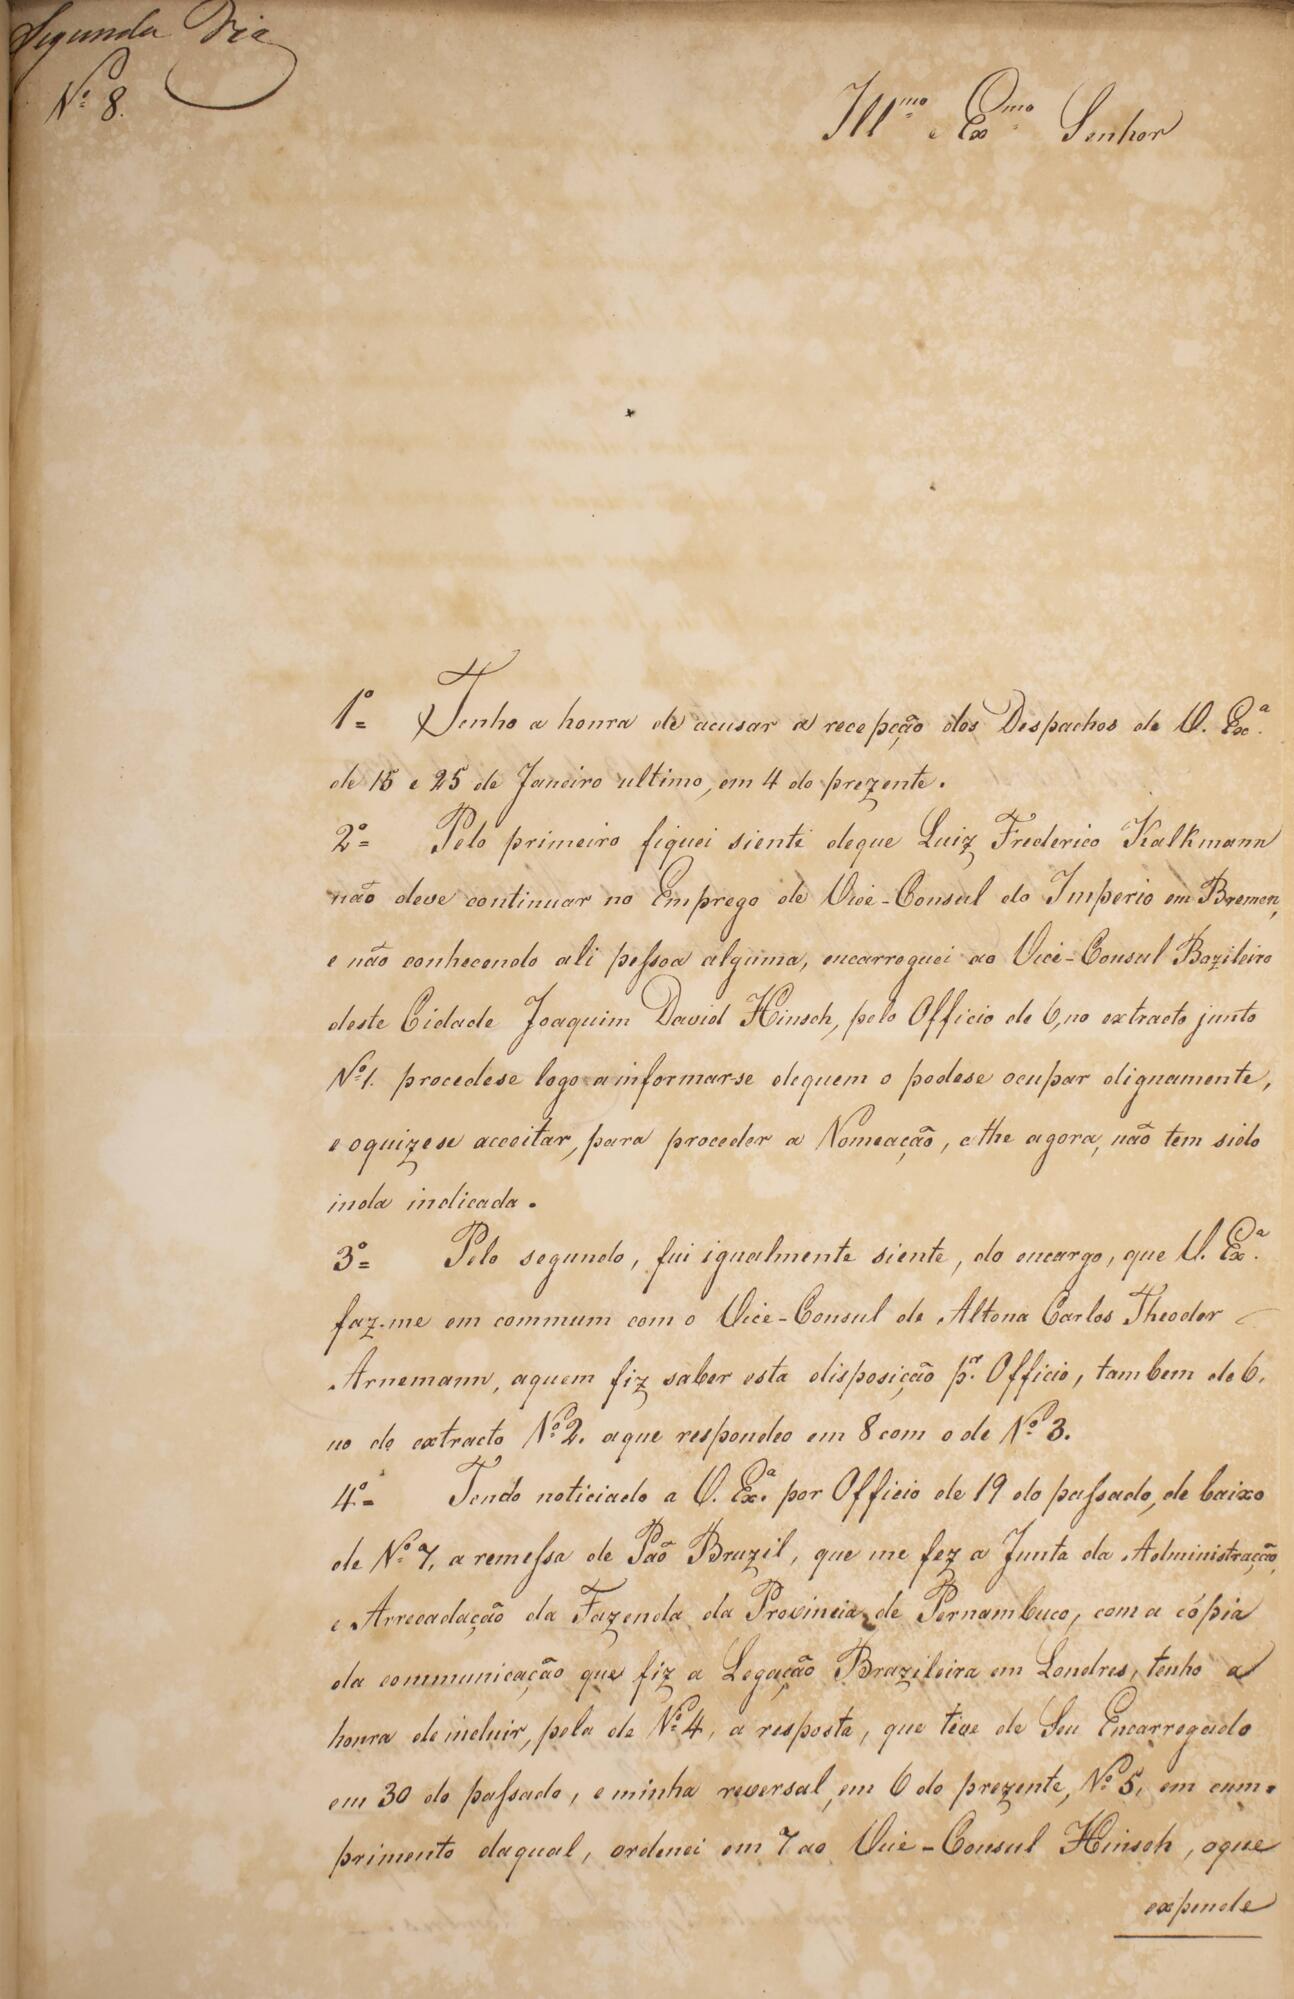 Segunda Via
Nº 8.
Illmo e Exmo Senhor
1º= Tenho a honra de acusar a recepção dos Despachos de V. Exª.
de 15 e 25 de Janeiro ultimo, em 4 do prezente.
2º= Pelo primeiro fiquei siente deque Luiz Frederico Kalkmann
não deve continuar no Emprego de Vice-Consul do Imperio em Bremen,
e não conhecendo ali pessoa alguma, encarreguei ao Vice-Consul Bazileiro
deste Cidade Joaquim David Hinsch, pelo Officio de 6, no extracto junto
Nº 1. procedese logo a informar-se dequem o podese ocupar dignamente,
e oquizese acceitar, para proceder a Nomeação, athe agora, não tem sido
inda indicada.
3º= Pelo segundo, fui igualmente siente, do encargo, que V. Exª.
faz-me em commum com o Vice-Consul de Altona Carlos Theodor
Arnemann, aquem fiz saber esta disposição pr. Officio, tambem de 6.
no do extracto Nº 2. aque respondeo em 8 com o de Nº 3.
4º= Tendo noticiado a V. Exª. por Officio de 19 do passado, de baixo
de Nº 7, a remessa de Páo Brazil, que me fez a Junta da Administração,
e Arrecadação da Fazenda da Provincia de Pernambuco, com a cópia
da communicação que fiz a Legação Brazileira em Londres, tenho a
honra de incluir, pela de Nº 4, a resposta, que tive de Seu Encarregado
em 30 do passado, e minha reversal, em 6 do prezente, Nº 5, em cum-
primento daqual, ordenei em 7 ao Vice-Consul Hinsch, oque
expende